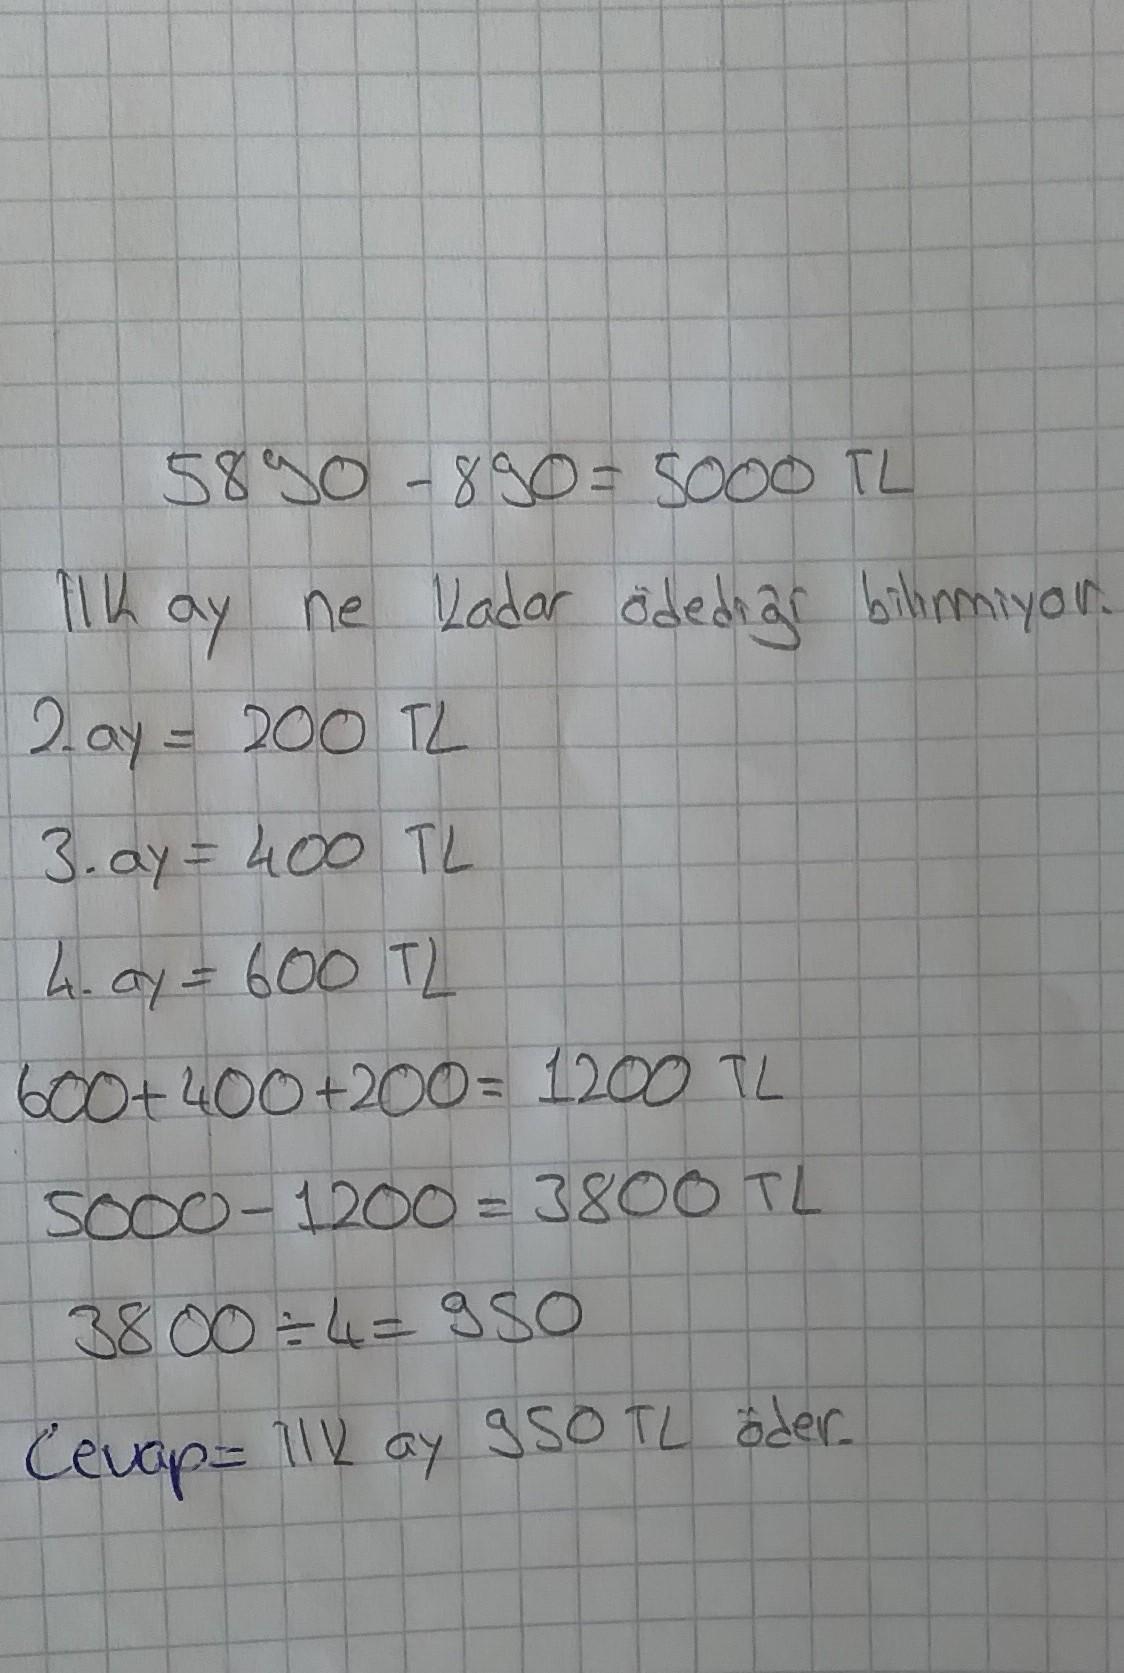 5890 - 890 = 5000 TL
İlk ay ne kadar ödediği bilinmiyor.
2. ay = 200 TL
3. ay = 400 TL
4. ay = 600 TL
600+400+200= 1200 TL
5000 - 1200 = 3800 TL
3800 ÷ 4 = 950
Cevap= İlk ay 950 TL öder.